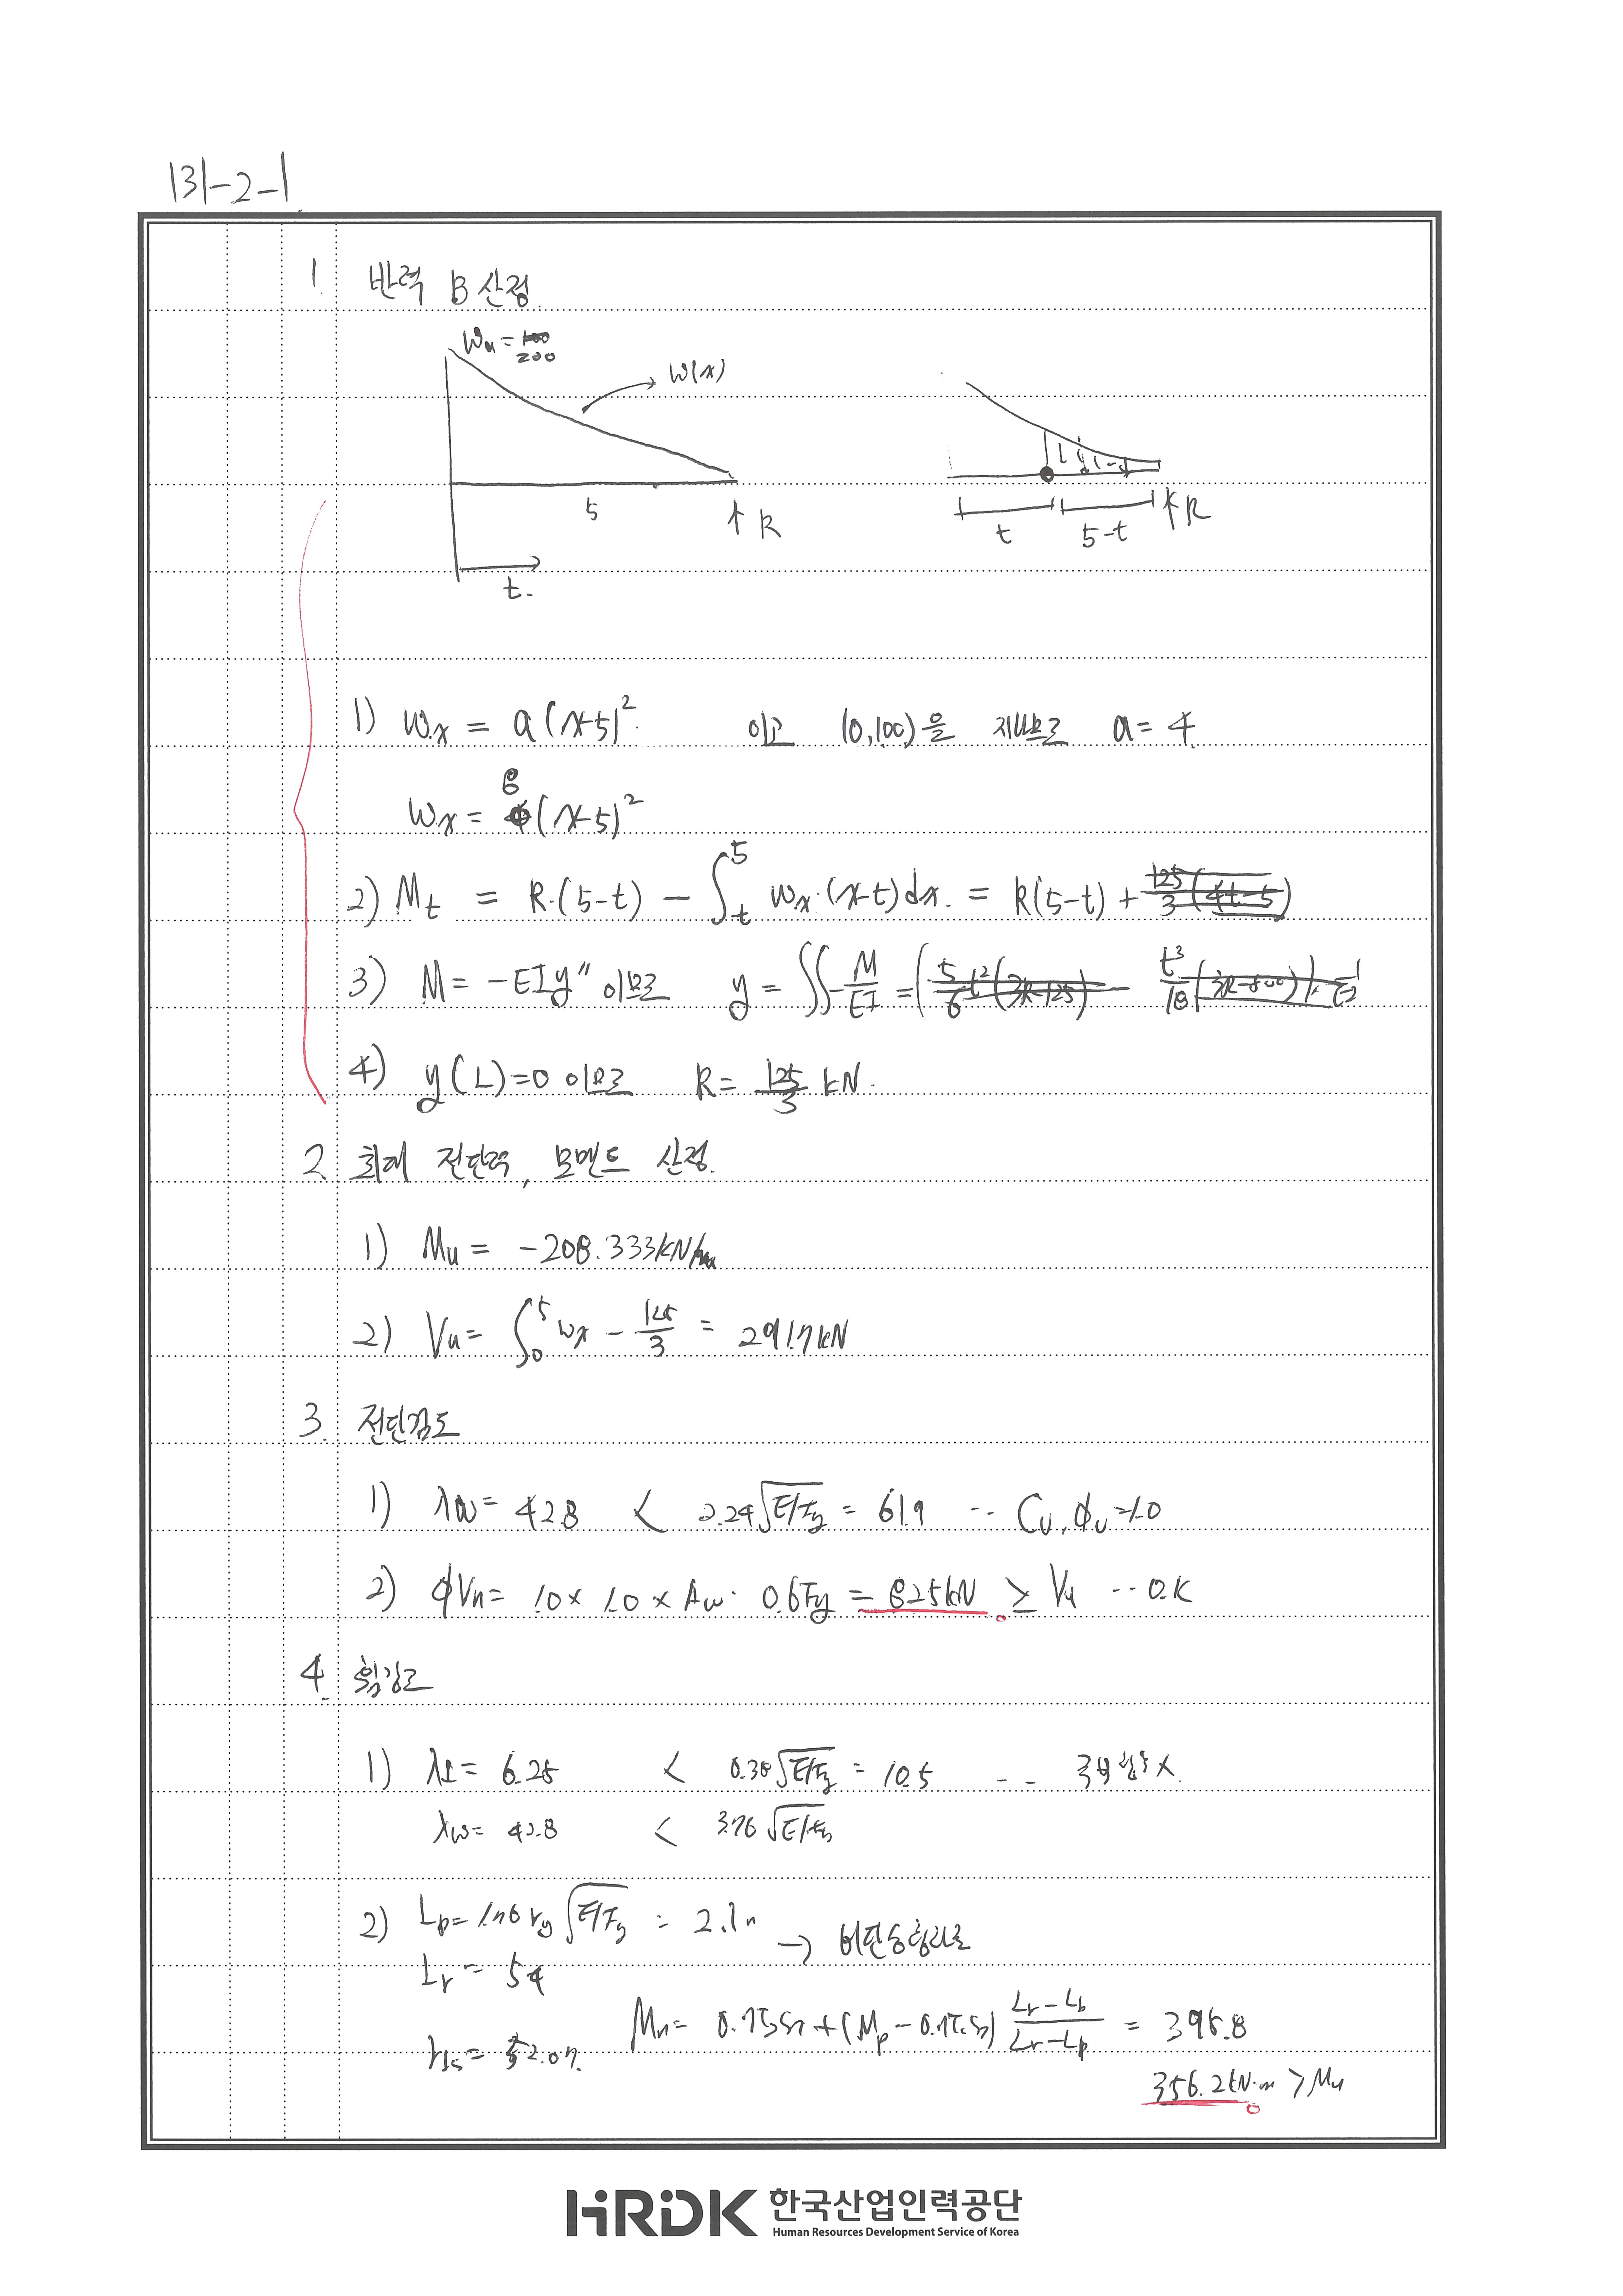 131-2-1
1. 반력 B 산정.
Wu = 100
200
W(x)
5
↑ R
t.
t
5-t
↑R
1) Wx = a(x-5)² 이고 (0,100)을 지나므로 a = 4
8
Wx = 4(x-5)²
2) Mt = R·(5-t) - ∫t^5 Wx·(x-t)dx. = R(5-t) + 125/3 (4t-5)
3) M = -EIy″ 이므로 y = ∬-M/EI = (5/6 t²(3R-125) - t³/18
4) y(L)=0 이므로 R = 125/3 kN.
2. 최대 전단력, 모멘트 산정.
1) Mu = -208.333kN/m
2) Vu = ∫0^5 Wx - 125/3 = 291.7kN
3. 전단강도
1) λw = 42.8 < 2.24√E/Fy = 61.9 ·· Cv, ϕv=1.0
2) ϕVn = 1.0 × 1.0 × Aw· 0.6Fy = 825kN ≥ Vu ·· O.K
4. 휨강도
1) λf = 6.25 < 0.38√E/Fy = 10.5 ·· 국부좌굴 X.
λw = 42.8 < 3.76√E/Fy
2) Lp = 1.76 ry √E/Fy = 2.1m
→ 비탄송힘므로
Lr = 5.4
Mn = 0.7FySn + (Mp - 0.7FySn) Lr-Lb/Lr-Lp = 395.8
rts = 52.07.
356.2kN·m > Mu
HRDK 한국산업인력공단
Human Resources Development Service of Korea